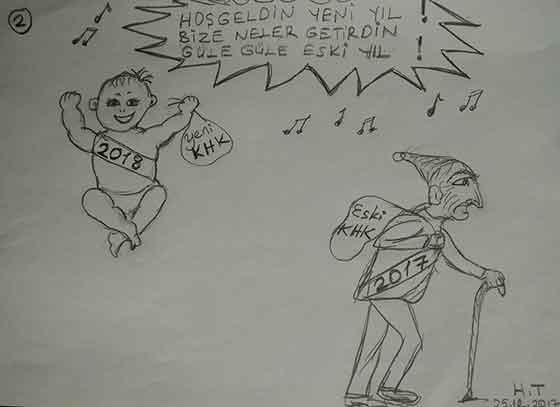 2
HOŞGELDİN YENİ YIL !
BİZE NELER GETİRDİN
GÜLE GÜLE ESKİ YIL !
2018
Yeni
KHK
Eski
KHK
2017
H.T
25.12.2017